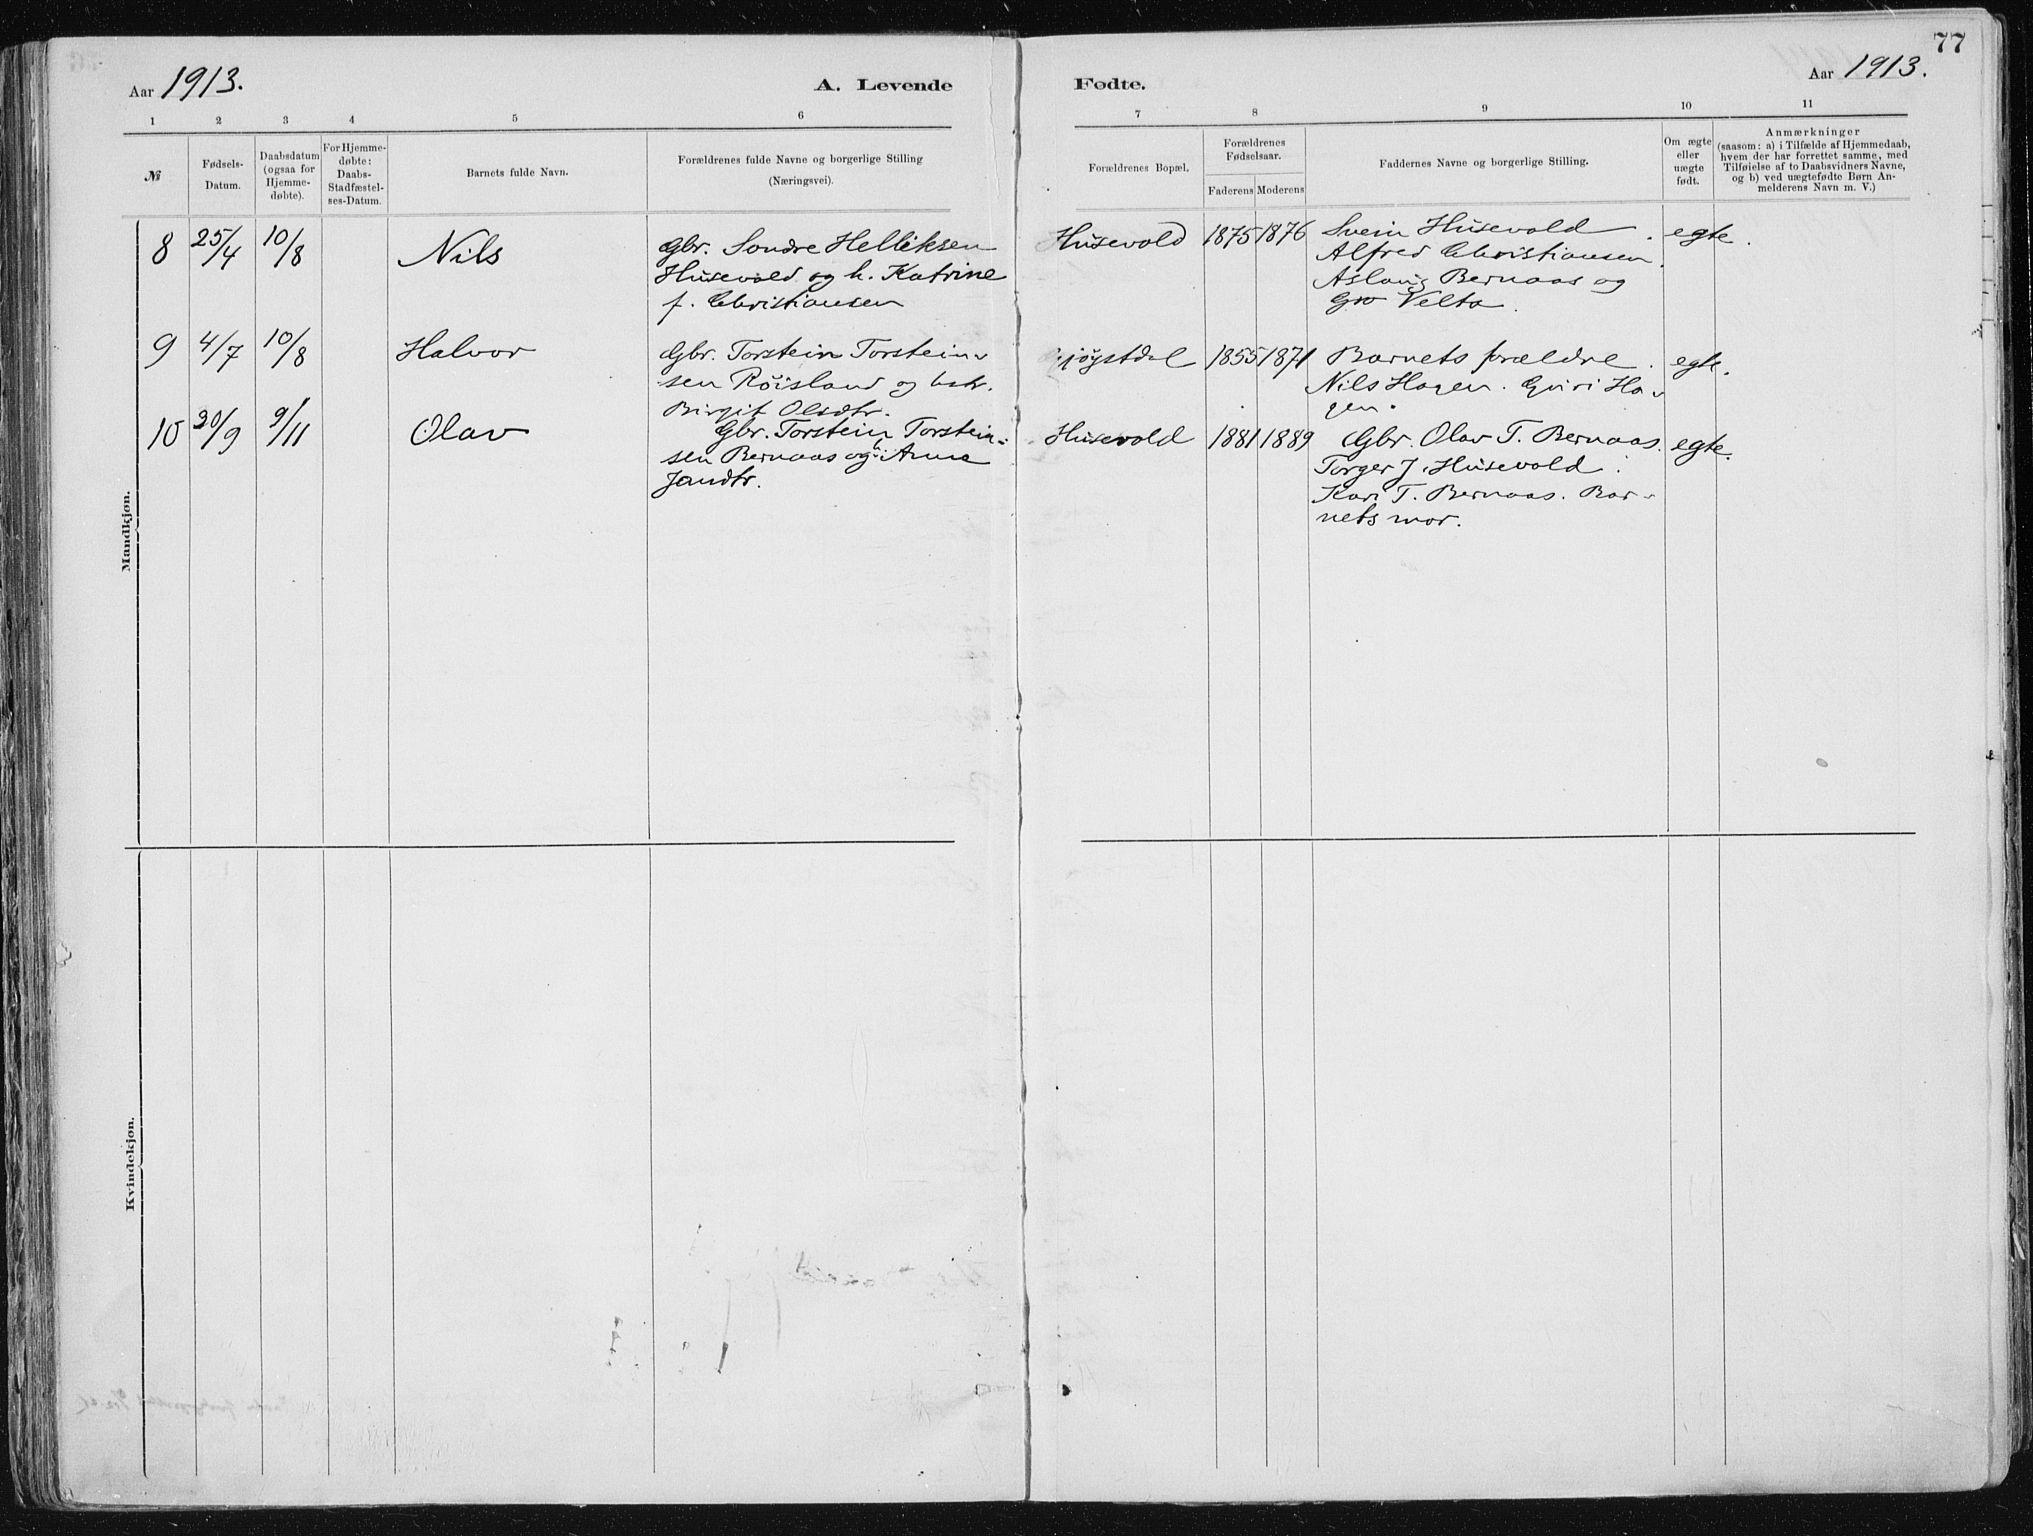 77
Aar 1913.
A. Levende
Fødte.
Aar 1913.
1 2 3 4 5 6 7 8 9 10 11
№
Fødsels-
Datum.
Daabsdatum
(ogsaa for
Hjemme-
døbte).
For Hjemme-
døbte:
Daabs-
Stadfæstel-
ses-Datum.
Barnets fulde Navn.
Forældrenes fulde Navne og borgerlige Stilling
(Næringsvei).
Forældrenes Bopæl.
Forældrenes
Fødselsaar.
Faderens Moderens
Faddernes Navne og borgerlige Stilling.
Om ægte
eller
uægte
født.
Anmærkninger
(saasom: a) i Tilfælde af Hjemmedaab,
hvem der har forrettet samme, med
Tilføielse af to Daabsvidners Navne,
og b) ved uægtefødte Børn An-
melderens Navn m. V.)
Mandkjøn.
8 25/4 10/8 Nils
Gbr. Sondre Helleksen
Husevold og h. Katrine
f. Christiansen
Husevold 1875 1876
Svein Husevold.
Alfred Christiansen.
Aslaug Bernaas og
Gro Velta.
egte.
9 4/7 10/8 Halvor
Gbr. Torstein Torstein-
sen Röisland og hstr.
Birgit Olsdtr.
jøgstdal 1855 1871
Barnets forældre.
Nils Hagen. Guri Ha-
gen.
egte.
10 20/9 9/11 Olav
Gbr. Torstein Torstein-
sen Bernaas og h. Anne
Jansdtr.
Husevold 1881 1889
Gbr. Olav T. Bernaas.
Torger J. Husevold.
Kari T. Bernaas. Bar-
nets mor.
egte.
Kvindekjøn.